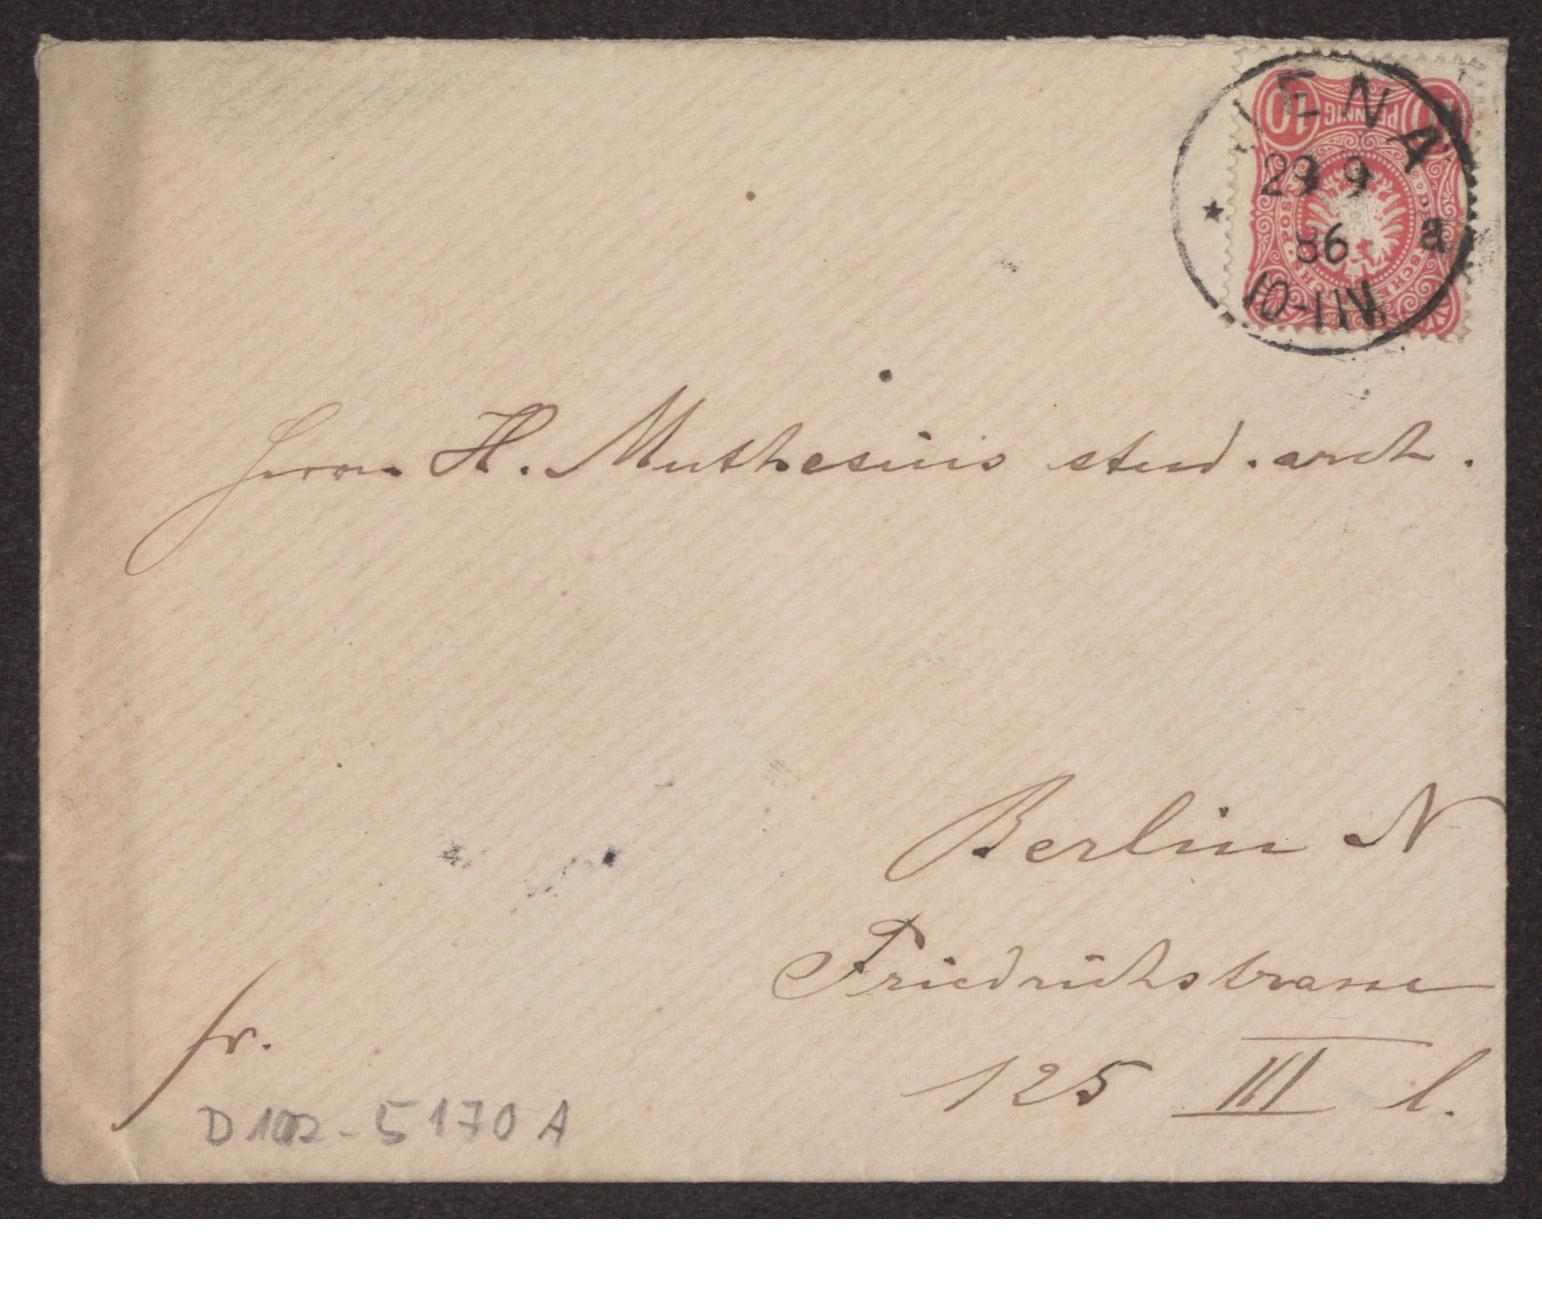 JENA
29 9
86
a
10-11N.
10 PFENNIG 10
Herrn H. Muthesius stud. arch.
Berlin N
Friedrichstrasse
125 III l.
fr.
D102-5170 A